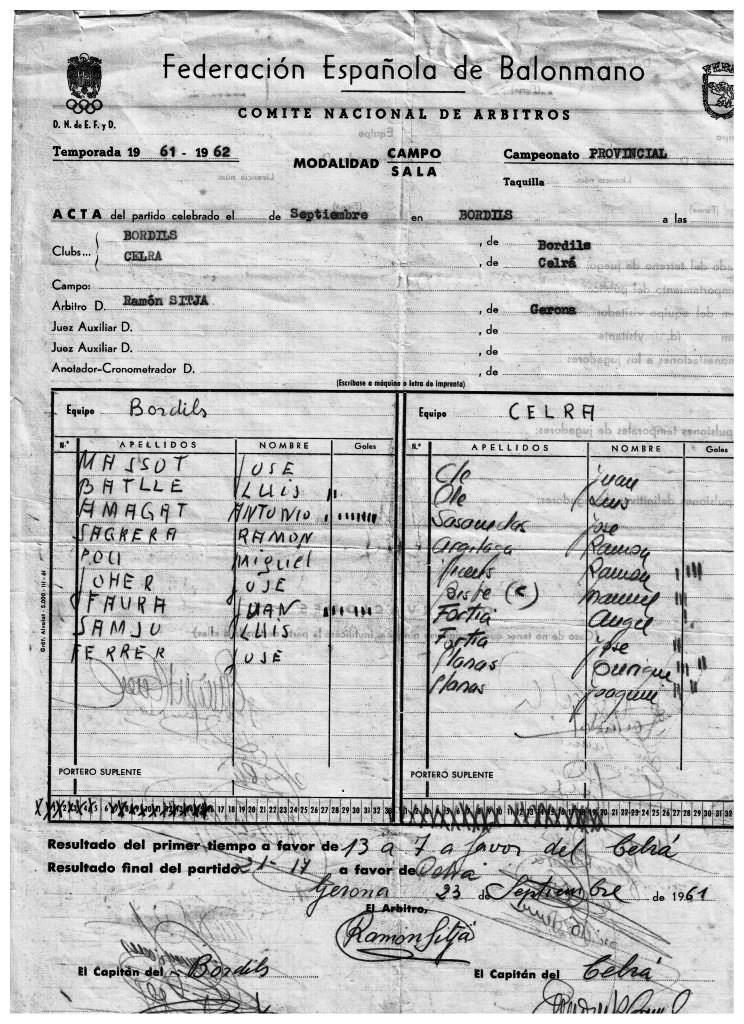 Federación Española de Balonmano
D. N. de E. F. y D.
COMITE NACIONAL DE ARBITROS
Temporada 19 61 - 19 62
MODALIDAD CAMPO
SALA
Campeonato PROVINCIAL
Taquilla
ACTA del partido celebrado el de Septiembre en BORDILS a las
Clubs... BORDILS , de Bordils
CELRA , de Celrá
Campo:
Arbitro D. Ramón SITJA , de Gerona
Juez Auxiliar D. , de
Juez Auxiliar D. , de
Anotador-Cronometrador D. , de
(Escríbase a máquina o letra de imprenta)
Equipo Bordils
N.º APELLIDOS NOMBRE Goles
MASSOT JOSE
BATLLE LUIS
AMAGAT ANTONIO
SAGRERA RAMON
POU Miguel
JOHER JOSE
FAURA JUAN
SAMSO LUIS
FERRER JOSE
PORTERO SUPLENTE
Equipo CELRA
N.º APELLIDOS NOMBRE Goles
Cle Juan
Ole Luis
jose
Argilaga Ramon
Vicens Ramon
Manuel
Fortiá Angel
Fortia jose
Planas Enrique
Planas joaquin
PORTERO SUPLENTE
Resultado del primer tiempo a favor de 13 a 7 a favor del Celrá
Resultado final del partido 21-17 a favor de Celra
Gerona 23 de Septiembre de 1961
El Arbitro,
Ramon Sitjà
El Capitán del Bordils
El Capitán del Celrá